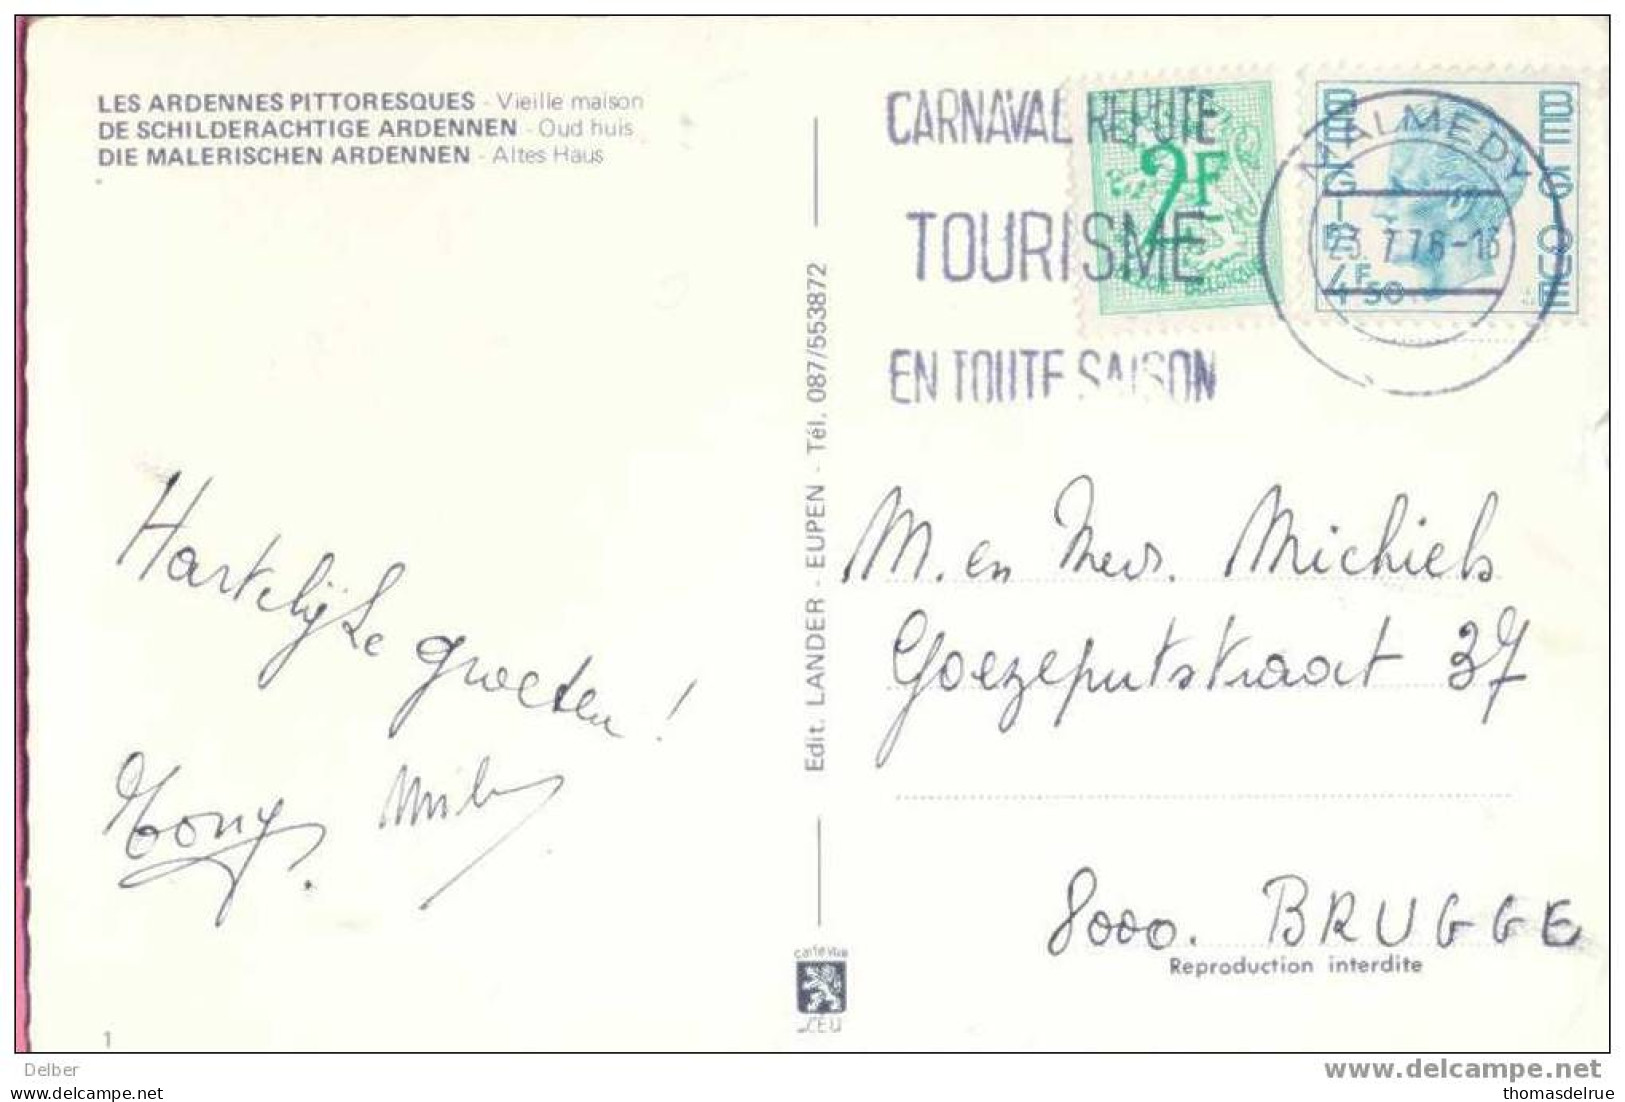 LES ARDENNES PITTORESQUES - Vieille maison
DE SCHILDERACHTIGE ARDENNEN - Oud huis
DIE MALERISCHEN ARDENNEN - Altes Haus
CARNAVAL REPUTE
TOURISME
EN TOUTE SAISON
2F
BELGIE BELGIQUE
MALMEDY
BELGIË
BELGIQUE
4F50
Edit. LANDER - EUPEN - Tél. 087/553872
Hartelijke groeten!
Tony.
M. en Mevr. Michiels
Goezeputstraat 37
8000. BRUGGE
Reproduction interdite
carte vue
LEU
1
Delber
www.delcampe.net
http://www.delcampe.net/stores/philarama
thomasdelrue